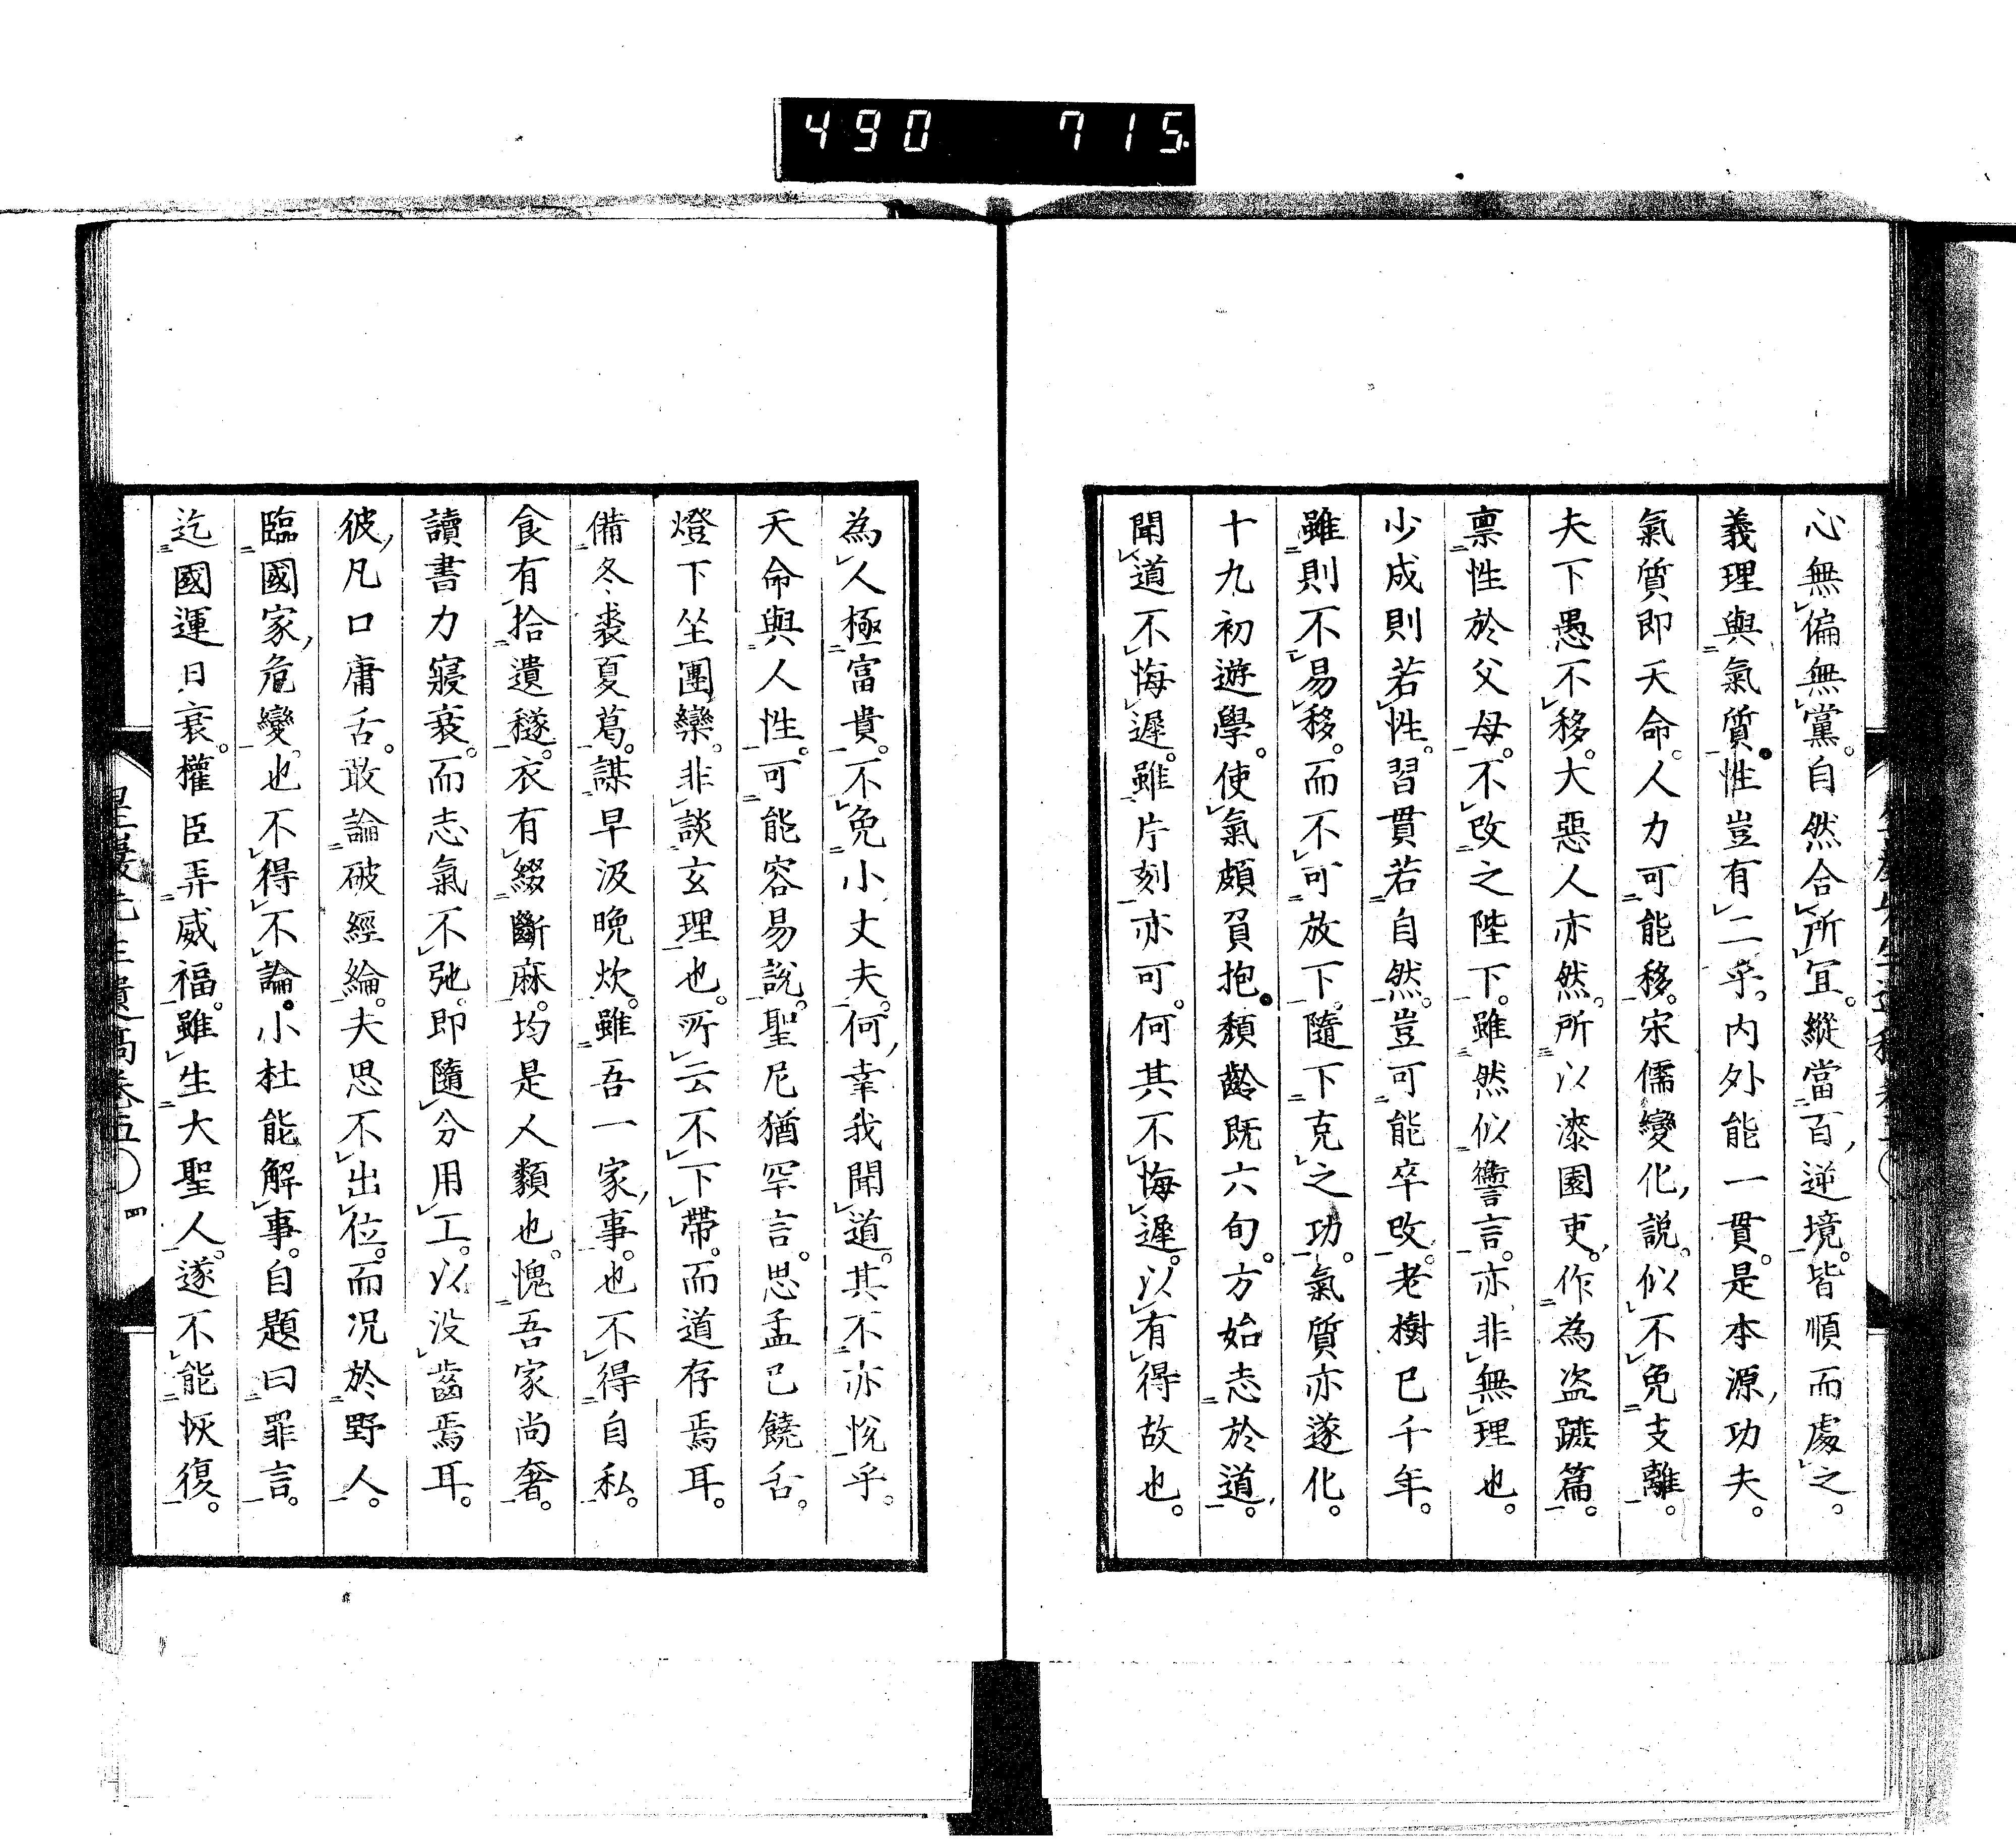 490 715
心無偏無黨。自然合所宜。縱當百逆境。皆順而處之。
義理與氣質。性豈有二乎。內外能一貫。是本源功夫。
氣質即天命。人力可能移。宋儒變化説。似不免支離。
夫下愚不移。大惡人亦然。所以漆園吏。作為盜蹠篇。
稟性於父母。不改之陛下。雖然似讏言。亦非無理也。
少成則若性。習貫若自然。豈可能卒改。老樹已千年。
雖則不易移。而不可放下。隨下克之功。氣質亦遂化。
十九初遊學。使氣頗負抱。頽齡既六旬。方始志於道。
聞道不悔遲。雖片刻亦可。何其不悔遲。以有得故也。
為人極富貴。不免小丈夫。何幸我聞道。其不亦悅乎。
天命與人性。可能容易說。聖尼猶罕言。思孟已饒舌。
燈下坐團欒。非談玄理也。所云不下帶。而道存焉耳。
備冬裘夏葛。謀早汲晚炊。雖吾一家事。也不得自私。
食有拾遺穟。衣有綴斷麻。均是人類也。愧吾家尚奢。
讀書力寢衰。而志氣不弛。即隨分用工。以没齒焉耳。
彼凡口庸舌。敢論破經綸。夫思不出位。而況於野人。
臨國家危變。也不得不論。小杜能解事。自題曰罪言。
迄國運日衰。權臣弄威福。雖生大聖人。遂不能恢復。
星巖先生遺稿卷五 四